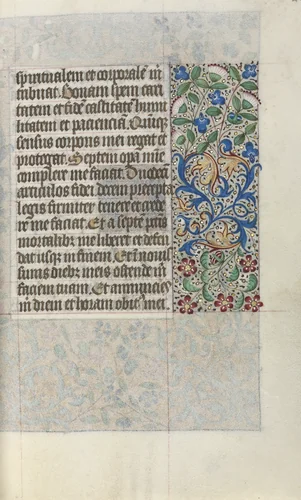 spiritualem et corporalē in
tribuat. Bonam spem cari
tatem et fidē castitatē humi
litatem et pacienciā. Quinqȝ
sensus corporis mei regat et
protegat. Septem opa mie
complere me faciat. Duodeci
articulos fidei decem precepta
legis firmiter tenere et crede
re me faciat. Et a septē pctis
mortalibȝ me liberet et defen
dat usqȝ in finem. Et in nouis
simis diebȝ meis ostende in
faciem tuam. Et annuncies
in diem et horam obitȝ mei